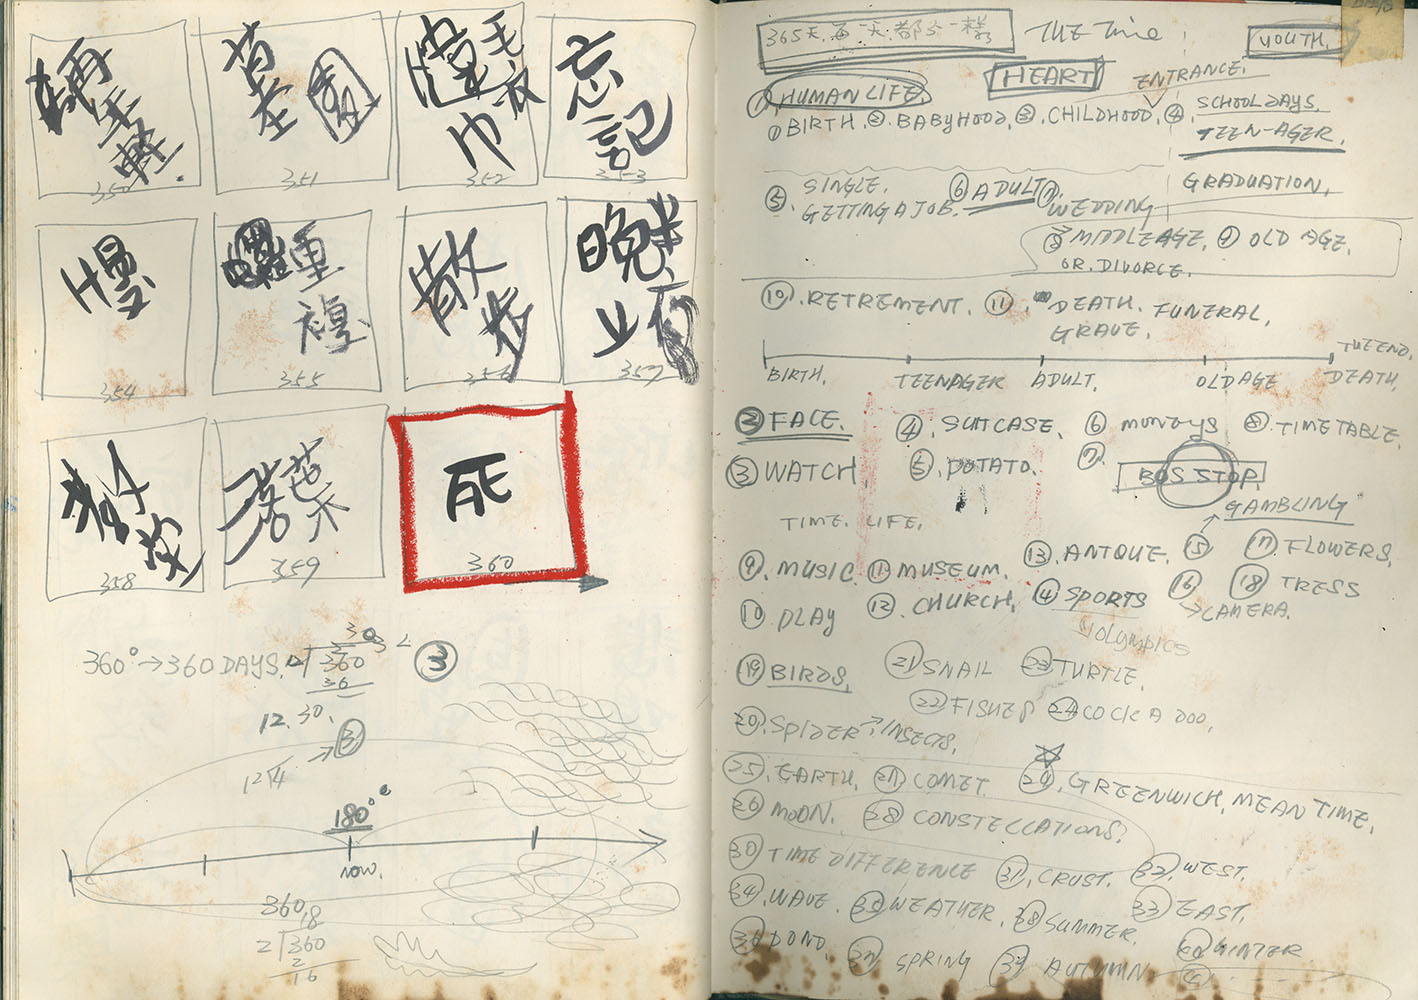 再年輕
350
墓園
351
毛衣
巾
352
忘記
353
慢
354
重複
355
散步
356
晚上
357
358
落葉
359
死
360
360° → 360 DAYS.
30
360
36
③
12.30.
③
12 4
180°
NOW.
360
18
2 360
2
16
365天.每一天.都不一樣
THE Time
YOUTH.
HEART
ENTRANCE.
① HUMAN LIFE.
① BIRTH. ② BABYHOOD. ③ CHILDHOOD. ④ SCHOOL DAYS.
TEEN-AGER.
GRADUATION.
⑤ SINGLE.
GETTING A JOB.
⑥ ADULT. ⑦ WEDDING
⑧ MIDDLE AGE. ⑨ OLD AGE.
OR. DIVORCE.
⑩. RETREMENT. ⑪. DEATH. FUNERAL.
GRAVE.
BIRTH. TEENAGER ADULT. OLD AGE THE END. DEATH.
② FACE. ④. SUITCASE. ⑥ MONEYS ⑧. TIMETABLE.
③ WATCH ⑤. POTATO. ⑦.
BOS STOP
TIME. LIFE.
GAMBLING
⑨. MUSIC. ⑪ MUSEUM. ⑬. ANTQUE. ⑮ ⑰. FLOWERS.
⑩ PLAY ⑫. CHURCH. ⑭ SPORTS ⑯ → CAMERA. ⑱ TRESS
OLYMPICS
⑲ BIRDS. ㉑ SNAIL ㉓ TURTLE.
㉒ FISHES ㉔ COCK A DOO.
⑳. SPIDER → INSECTS.
㉕. EARTH. ㉗ COMET ㉙. GREENWICH. MEAN TIME.
㉖ MOON. ㉘ CONSTELLATIONS.
㉚ TIME DIFFERENCE ㉛. CRUST. ㉜. WEST.
㉞. WAVE. ㉟ WEATHER. ㊳ SUMMER. ㉝ EAST.
㊱ POND. ㊲ SPRING ㊴ AUTUMN. ㊵ WINTER